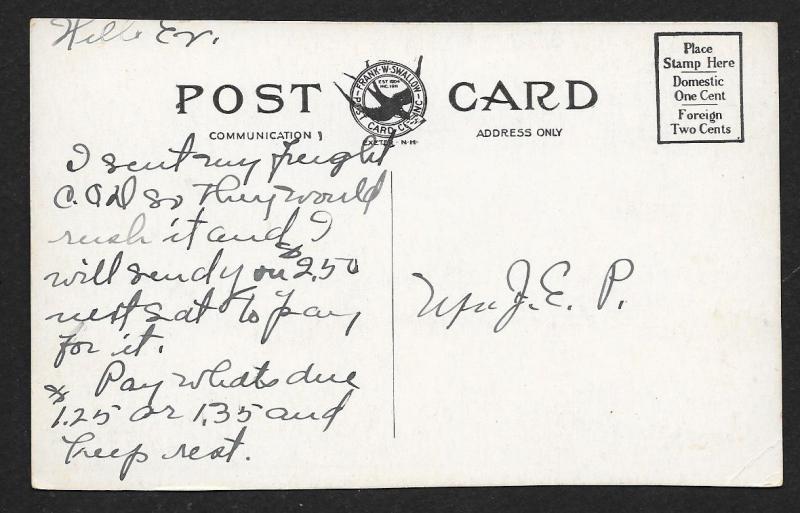 Hello Ev.
POST CARD
FRANK·W·SWALLOW
POST CARD CO. INC.
EST 1904
INC. 1911
EXETER - N·H·
COMMUNICATION
ADDRESS ONLY
Place
Stamp Here
Domestic
One Cent
Foreign
Two Cents
I sent my freight
C.O.D so they would
rush it and I
will send you $2.50
next sat to pay
for it.
Pay whats due
$1.25 or 1.35 and
keep rest.
J. E. P.